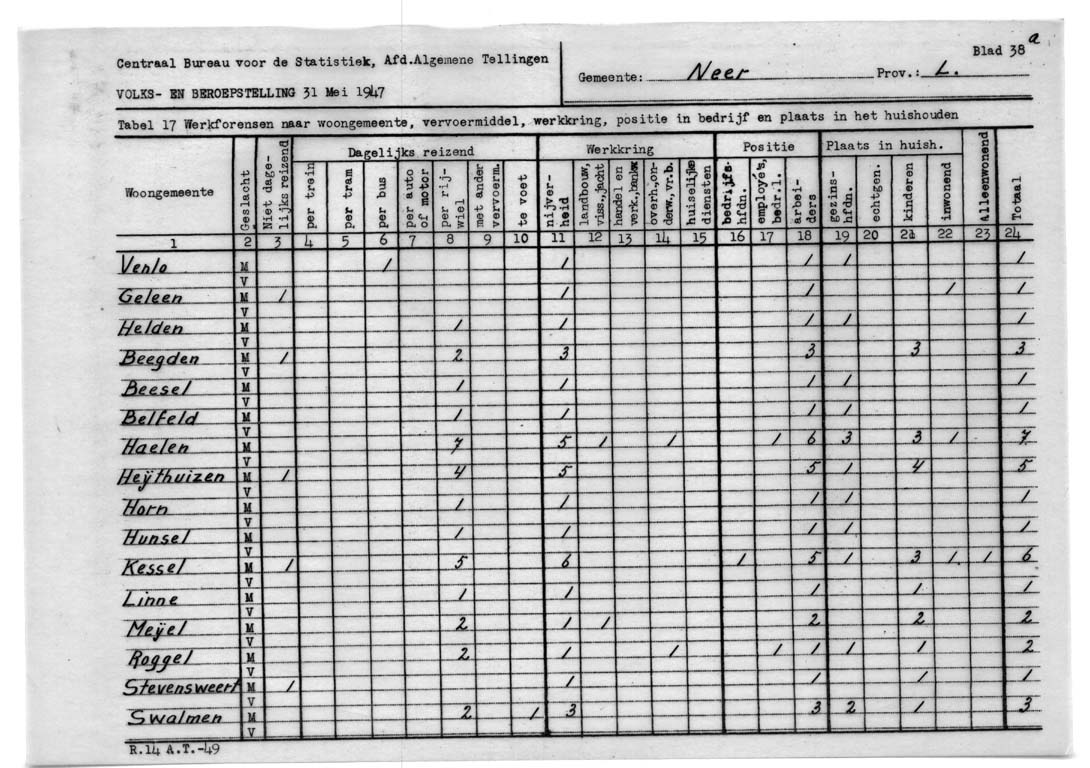 Centraal Bureau voor de Statistiek, Afd.Algemene Tellingen
VOLKS- EN BEROEPSTELLING 31 Mei 1947
Gemeente: Neer Prov.: L.
Blad 38 a
Tabel 17 Werkforensen naar woongemeente, vervoermiddel, werkkring, positie in bedrijf en plaats in het huishouden
Woongemeente
Geslacht
Niet dage-
lijks reizend
Dagelijks reizend
per trein
per tram
per bus
per auto
of motor
per rij-
wiel
met ander
vervoerm.
te voet
Werkkring
nijver-
heid
landbouw,
viss., jacht
handel en
verk., bankw
overh., on-
derw., vr.b.
huiselijke
diensten
Positie
bedrijfs-
hfdn.
employé's,
bedr.l.
arbei-
ders
Plaats in huish.
gezins-
hfdn.
echtgen.
kinderen
inwonend
alleenwonend
Totaal
1 2 3 4 5 6 7 8 9 10 11 12 13 14 15 16 17 18 19 20 21 22 23 24
Venlo M 1 1 1 1 1
V
Geleen M 1 1 1 1 1
V
Helden M 1 1 1 1 1
V
Beegden M 1 2 3 3 3 3
V
Beesel M 1 1 1 1 1
V
Belfeld M 1 1 1 1 1
V
Haelen M 7 5 1 1 1 6 3 3 1 7
V
Heÿthuizen M 1 4 5 5 1 4 5
V
Horn M 1 1 1 1 1
V
Hunsel M 1 1 1 1 1
V
Kessel M 1 5 6 1 5 1 3 1 1 6
V
Linne M 1 1 1 1 1
V
Meÿel M 2 1 1 2 2 2
V
Roggel M 2 1 1 1 1 1 1 2
V
Stevensweert M 1 1 1 1 1
V
Swalmen M 2 1 3 3 2 1 3
V
R.14 A.T.-49